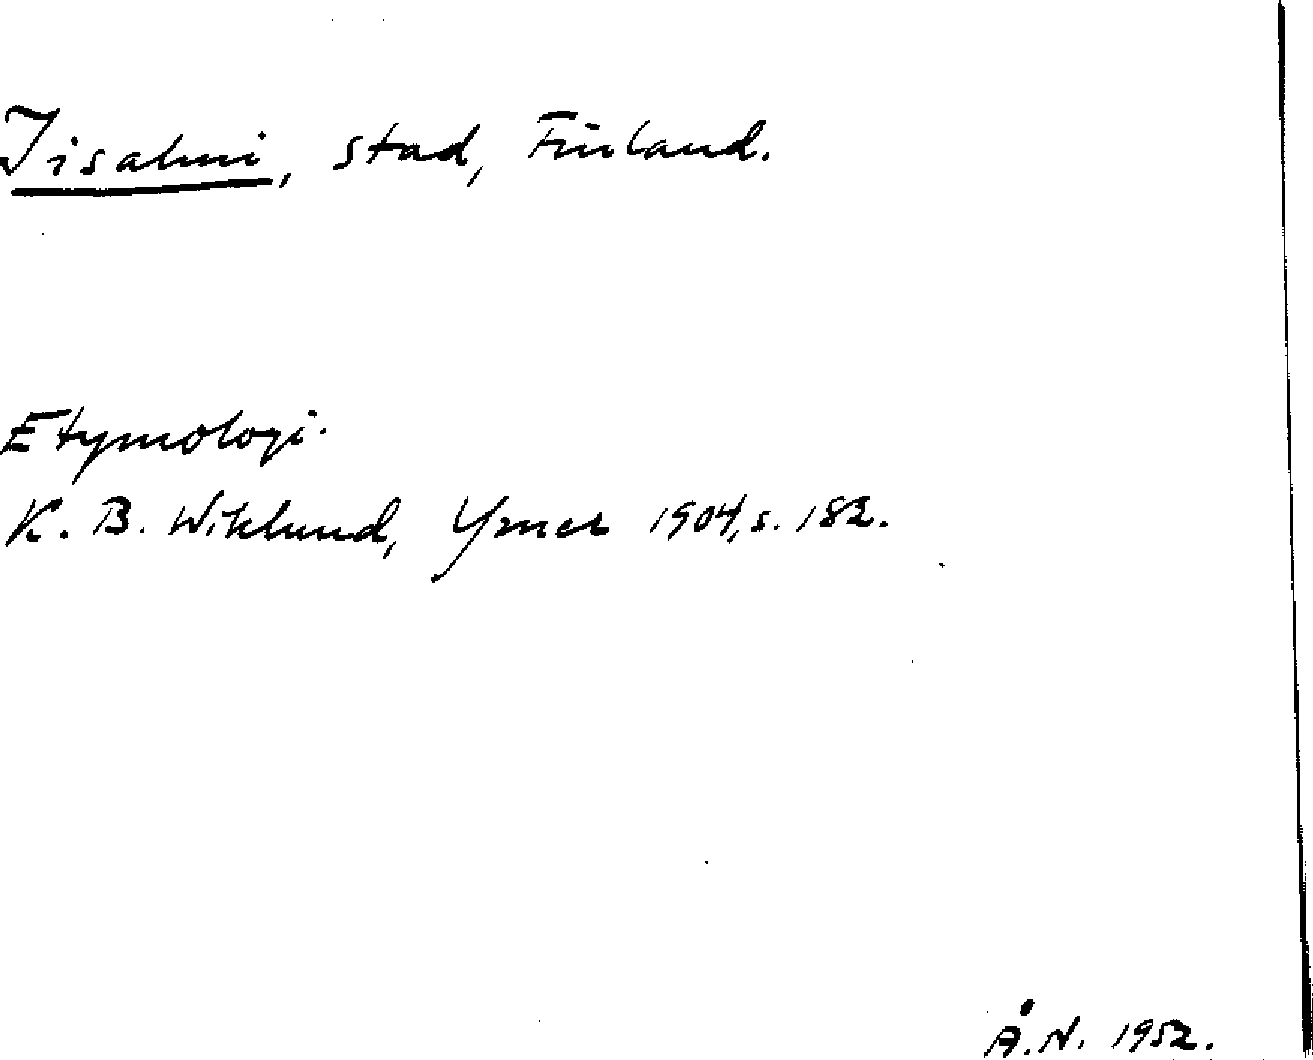 Iisalmi, stad, Finland.
Etymologi.
K. B. Wiklund, Ymer 1904, s. 182.
Å.N. 1952.